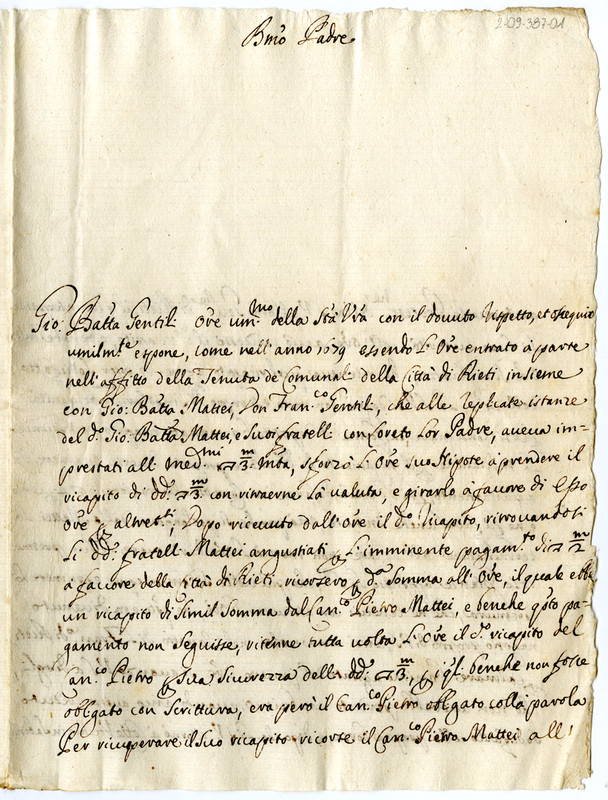 2-09-387-01
Bmo Padre
Gio: Batta Gentili Ore um.mo della Stà Vrà con il dovuto rispetto, et ossequio
umilm.te espone, come nell'anno 1679 essendo l'Ore entrato à parte
nell'affitto della Tenuta de Comunali della Città di Rieti insieme
con Gio: Batta Mattei, Don Fran.co Gentili, che alle replicate istanze
del d.o Gio: Batta Mattei, e suoi fratelli con Loreto lor Padre, aveva im-
prestati alli med.mi 3 m/ta, sforzò l'Ore suo Nipote à prendere il
ricapito di dd.i 3 m con ritraerne la valuta, e girarlo à favore di esso
Ore altret.ti; Dopo ricevuto dall'Ore il d.o ricapito, ritrovandosi
li dd.i fratelli Mattei angustiati l'imminente pagam.to di 2 m
à favore della città di Rieti, ricorsero d.a somma all'Ore, il quale ebbe
un ricapito di simil somma dal Can.co Pietro Mattei, e benche q̃sto pa-
gamento non seguisse, ritenne tutta volta l'Ore il d.o ricapito del
Can.co Pietro sua sicurezza delli dd.i 3 m, i q̃li benche non fosse
obligato con scrittura, era però il Can.co Pietro obligato colla parola
Per ricuperare il suo ricapito ricorse il Can.co Pietro Mattei all'